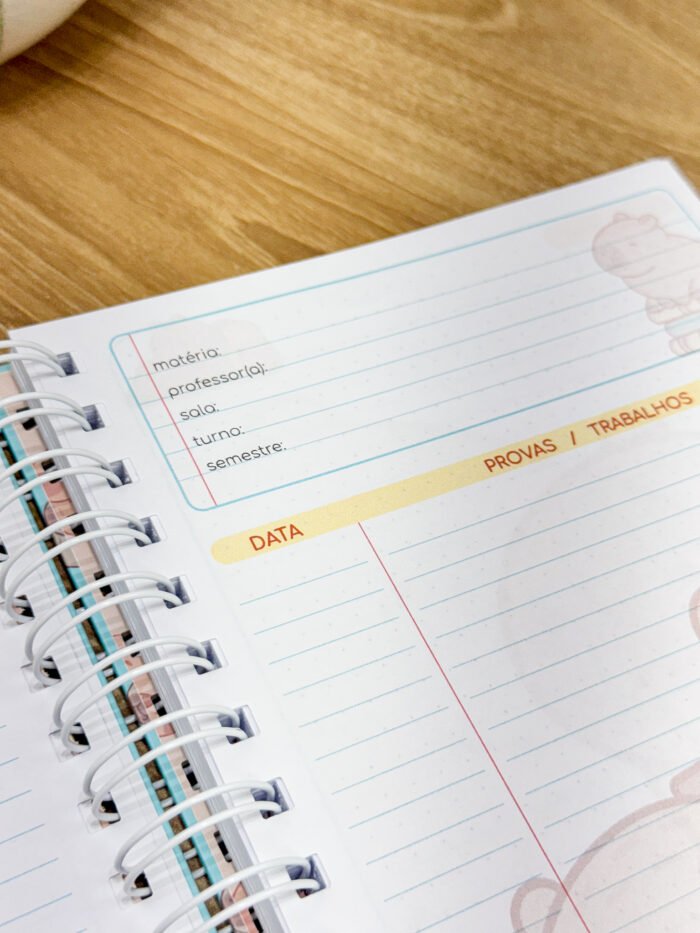 matéria:
professor(a):
sala:
turno:
semestre:
DATA PROVAS / TRABALHOS